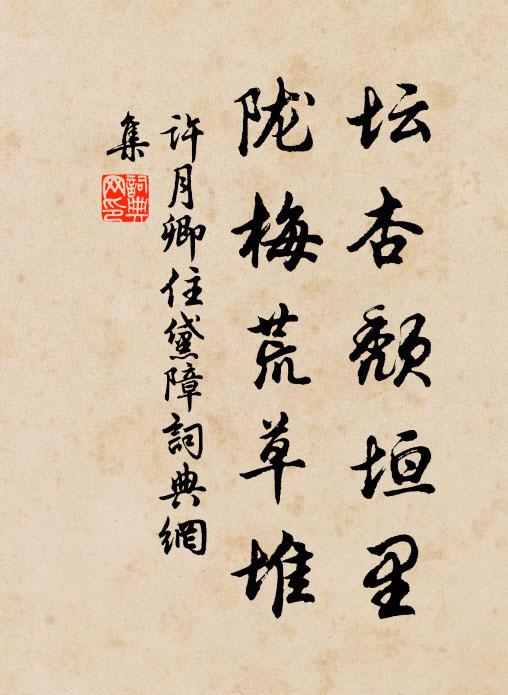 坛杏颓垣里
陇梅荒草堆
许月卿住黛障詞典網
集
詞典網印